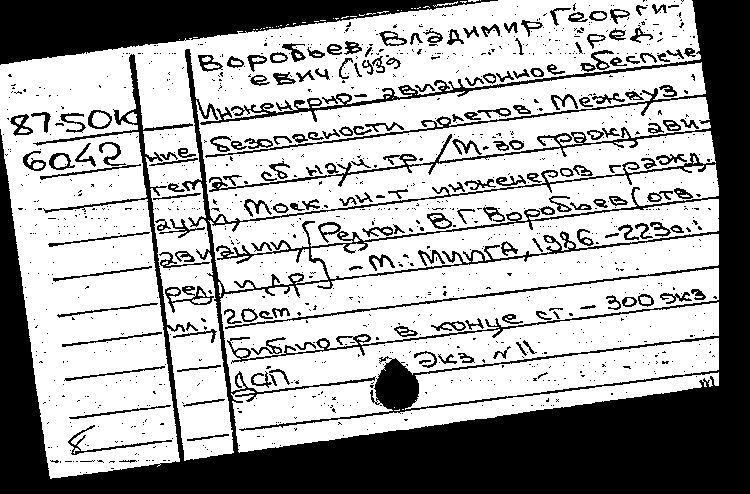 Воробьев, Владимир Георги-
евич (1939
,ред.
87-50к
6042
Инженерно-авиационное обеспече
ние безопасности полетов: Межвуз.
темат. сб. науч. тр. / М-во гражд. ави-
ации, Моск. ин-т инженеров гражд.
авиации; [Редкол.: В.Г. Воробьев (отв.
ред.) и др.] - М.: МИИГА, 1986. - 223с.:
ил.; 20см.
Библиогр. в конце ст. - 300 экз.
ДСП. Экз. N 11.
8